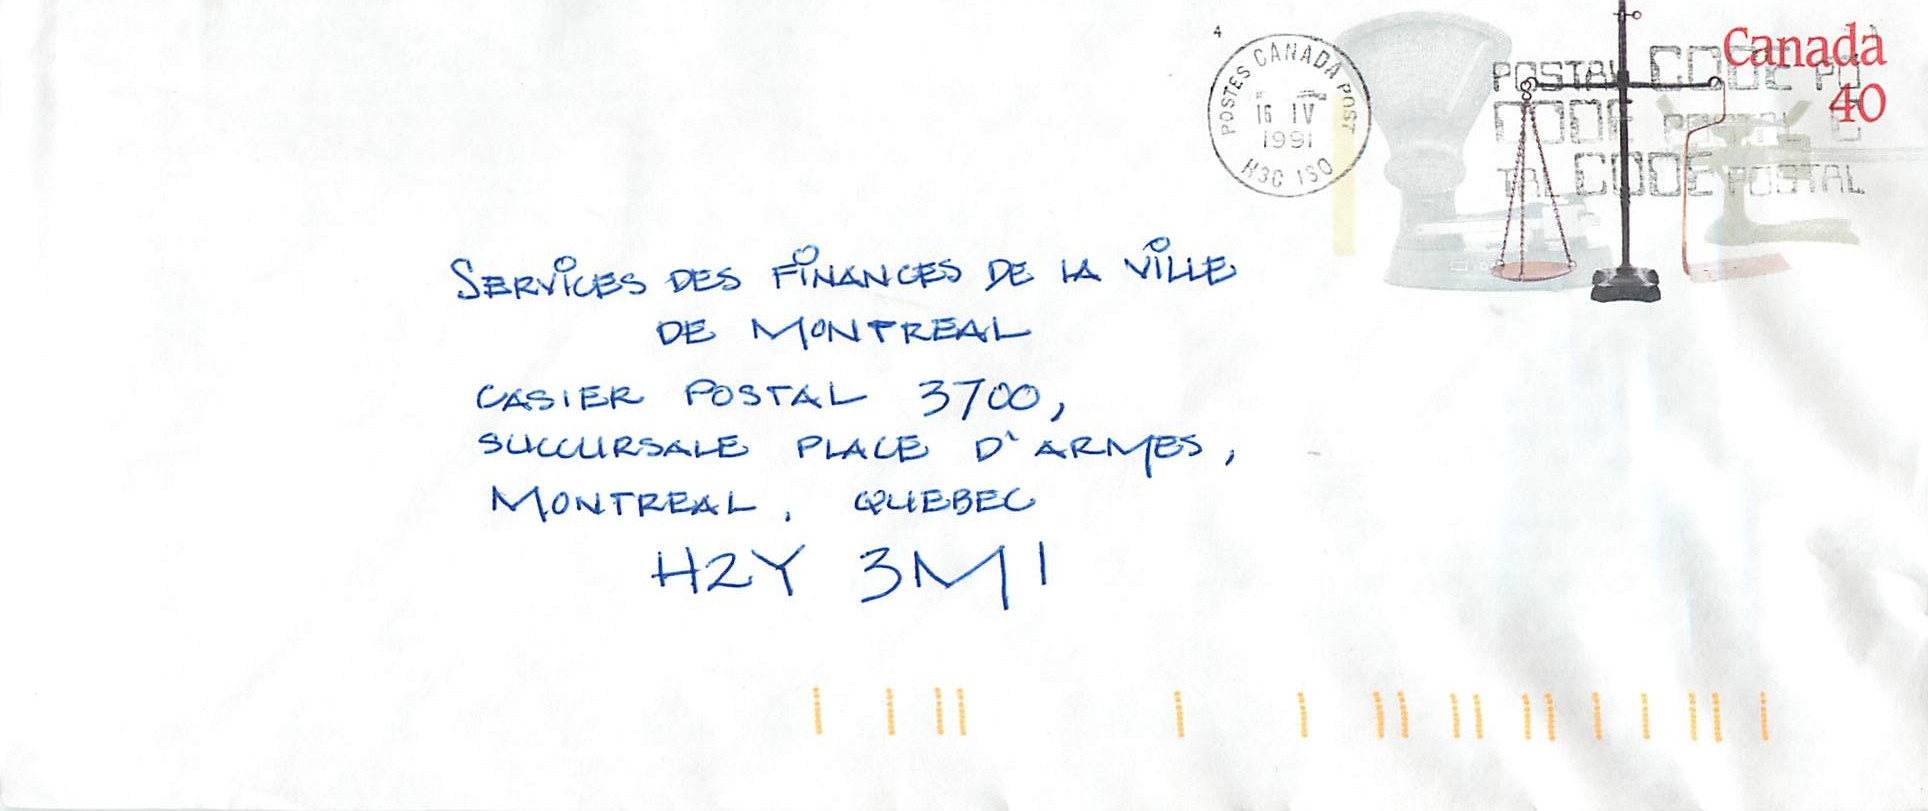 4
POSTES CANADA POST
16 IV
1991
H3C 1S0
Canada
40
POSTAL CODE PO
CODE POSTAL C
TAL CODE POSTAL
SERVICES DES FINANCES DE LA VILLE
DE MONTREAL
CASIER POSTAL 3700,
SUCCURSALE PLACE D'ARMES,
MONTREAL, QUEBEC
H2Y 3M1